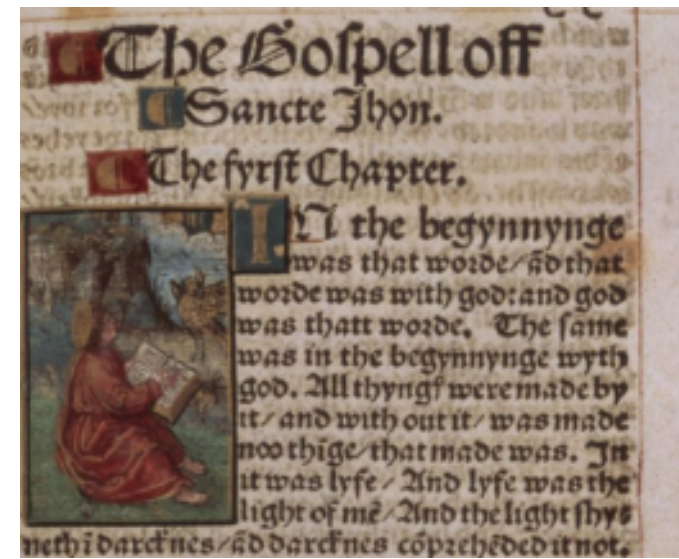 The Goſpell off
Sancte Jhon.
The fyrſt Chapter.
IN the begynnynge
was that worde/ ād that
worde was with god: and god
was thatt worde. The ſame
was in the begynnynge wyth
god. All thyngſ were made by
it/ and with out it/ was made
noo thīge/ that made was. In
it was lyfe/ And lyfe was the
light of mē/ And the light ſhys
neth ī darcknes/ ād darcknes cōprehēded it not.